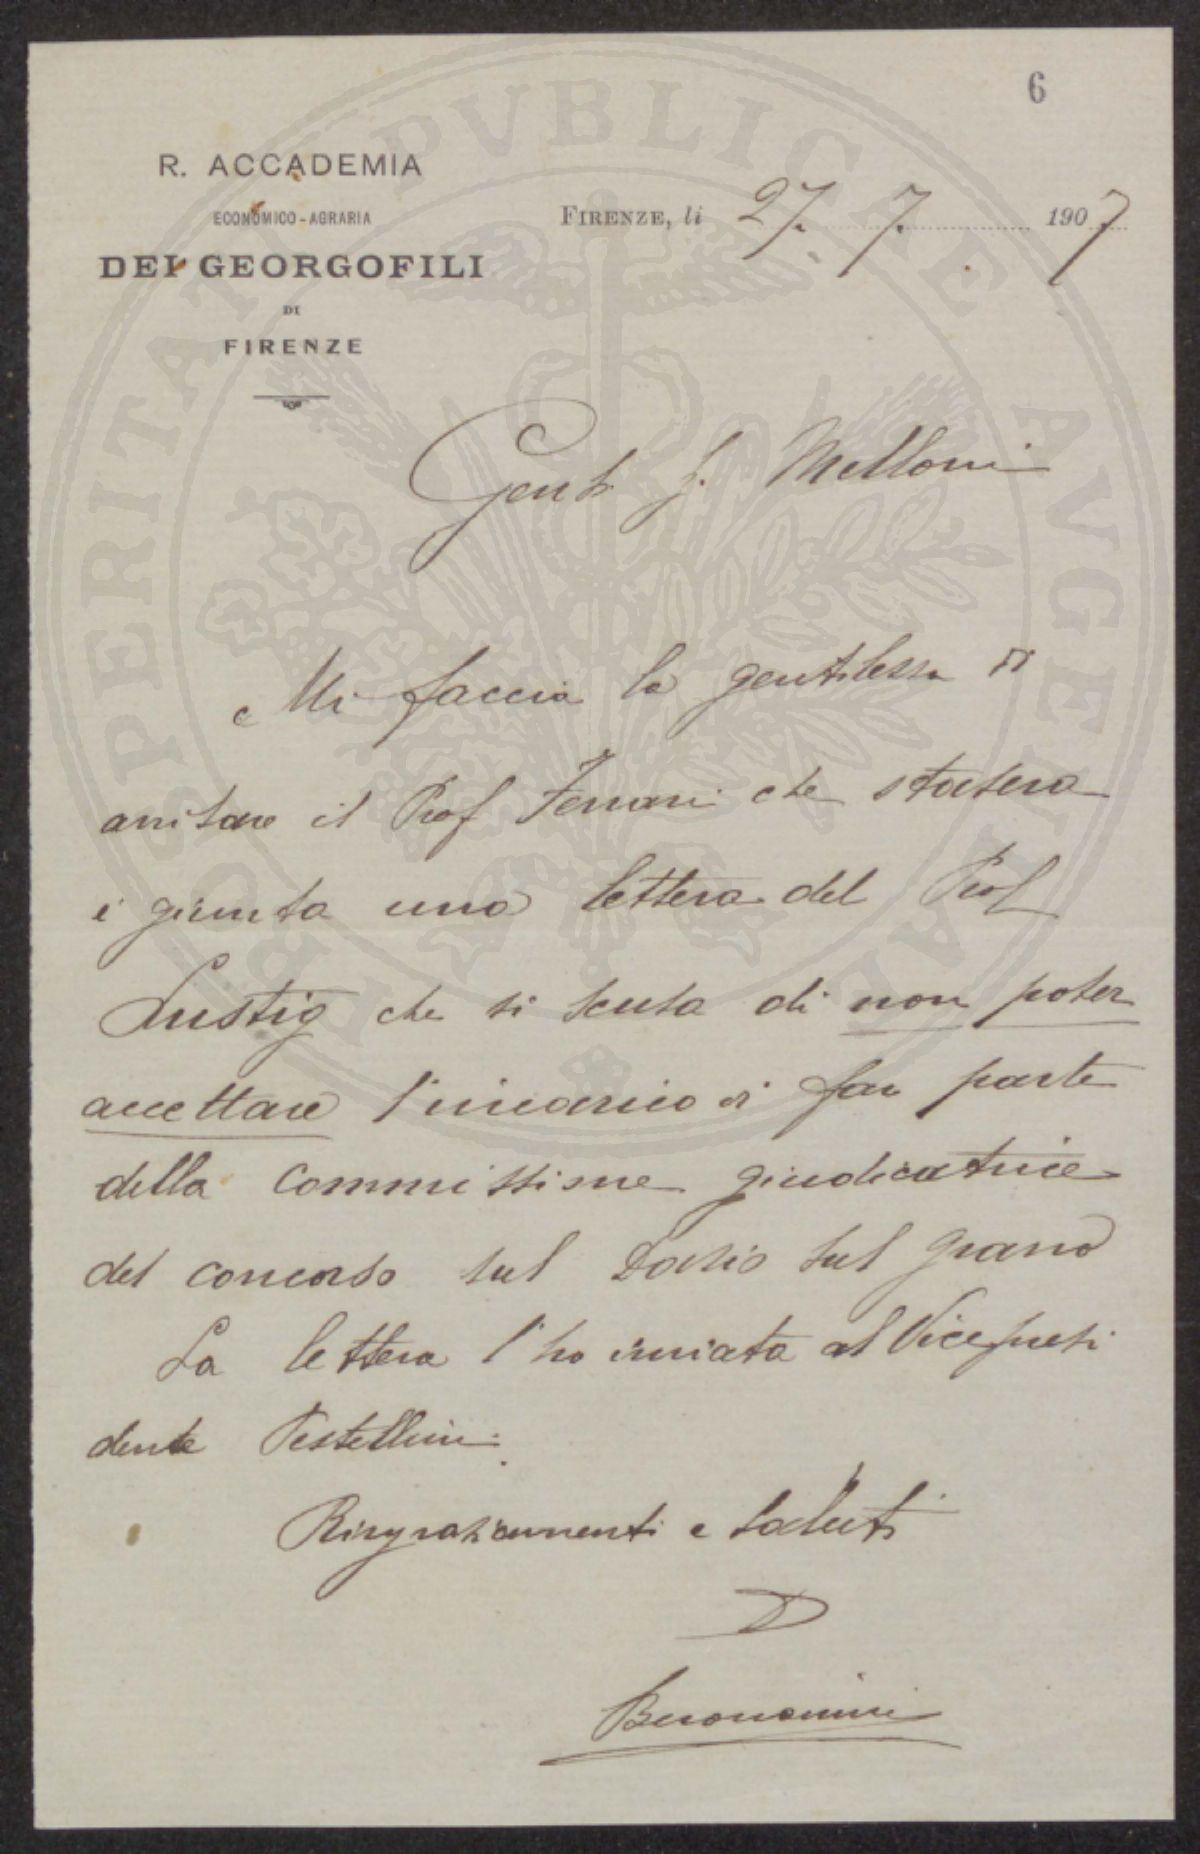 6
R. ACCADEMIA
ECONOMICO-AGRARIA
DEI GEORGOFILI
DI
FIRENZE
FIRENZE, li 27. 7. 1907
PROSPERITATI PVBLICAE AVGENDAE
Mi faccia la gentilezza di
avvisare il Prof Ferrari che stasera
è giunta una lettera del Prof
Lustig che si scusa di non poter
accettare l'incarico di far parte
della Commissione giudicatrice
del concorso sul Dazio sul grano
La lettera l'ho inviata al Vicepresi
dente Pestellini.
Ringraziamenti e saluti
D